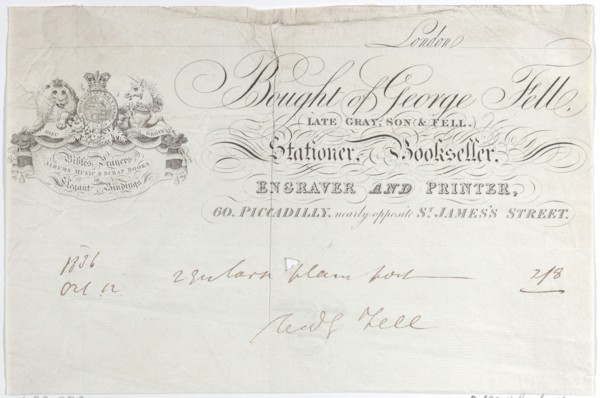 London
Bought of George Fell.
(LATE GRAY, SON & FELL.)
Stationer, Bookseller,
ENGRAVER AND PRINTER,
60, PICCADILLY, nearly opposite St. JAMES'S STREET.
Bibles, Prayers,
ALBUMS MUSIC & SCRAP BOOKS
in
Elegant Bindings
1836
Oct. 12
plain post 2/8
Fell